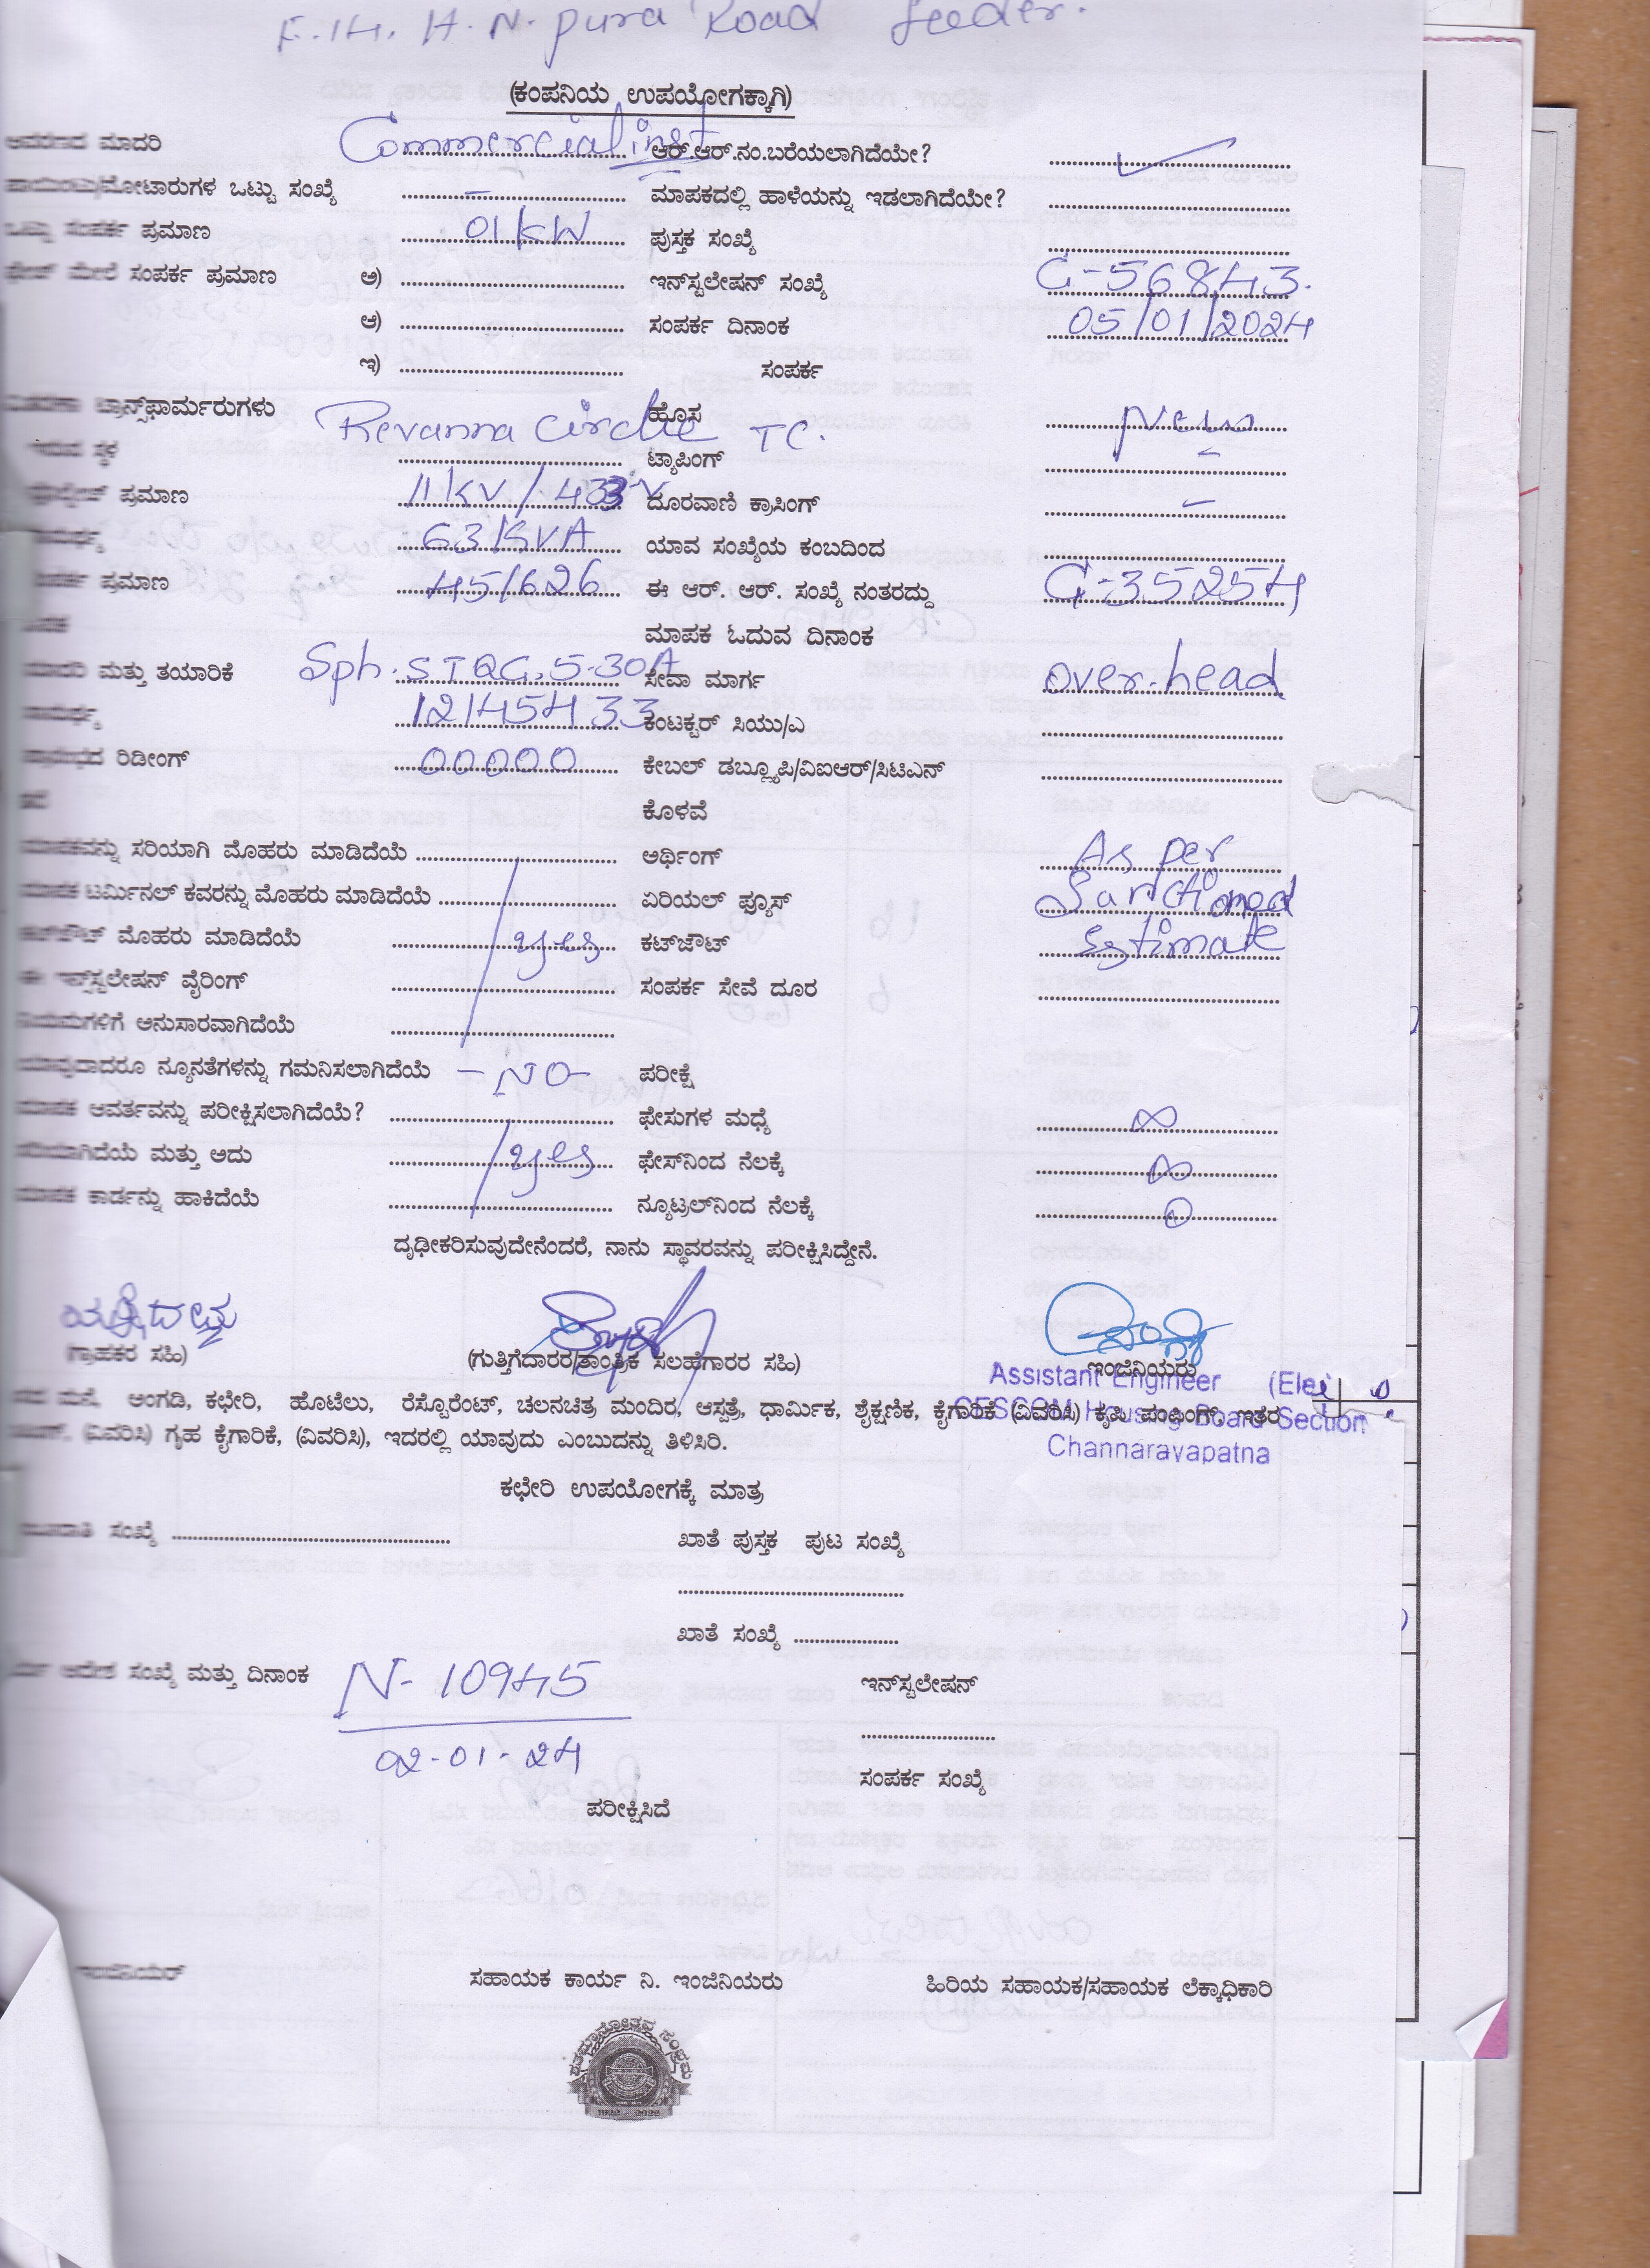 F-14. H.N. pura Road feeder.
(ಕಂಪನಿಯ ಉಪಯೋಗಕ್ಕಾಗಿ)
ಮಾದರಿ Commercial inst ಆರ್.ಆರ್.ನಂ.ಬರೆಯಲಾಗಿದೆಯೇ? ✓
ಪಾಯಿಂಟು/ಮೋಟಾರುಗಳ ಒಟ್ಟು ಸಂಖ್ಯೆ – ಮಾಪಕದಲ್ಲಿ ಹಾಳೆಯನ್ನು ಇಡಲಾಗಿದೆಯೇ?
ಒಟ್ಟು ಸಂಪರ್ಕ ಪ್ರಮಾಣ 01KW ಪುಸ್ತಕ ಸಂಖ್ಯೆ
ಫೇಜ್ ಮೇಲೆ ಸಂಪರ್ಕ ಪ್ರಮಾಣ ಅ) ಇನ್‌ಸ್ಟಲೇಷನ್ ಸಂಖ್ಯೆ C-56843.
ಆ) ಸಂಪರ್ಕ ದಿನಾಂಕ 05/01/2024
ಇ) ಸಂಪರ್ಕ
ಟ್ರಾನ್ಸ್‌ಫಾರ್ಮರುಗಳು Revanna circle TC. ಹೊಸ New
ಇರುವ ಸ್ಥಳ ಟ್ಯಾಪಿಂಗ್ –
ಪ್ರಮಾಣ 11KV/433V ದೂರವಾಣಿ ಕ್ರಾಸಿಂಗ್ –
63KVA ಯಾವ ಸಂಖ್ಯೆಯ ಕಂಬದಿಂದ
ಪ್ರಮಾಣ 45/626 ಈ ಆರ್. ಆರ್. ಸಂಖ್ಯೆ ನಂತರದ್ದು C-35254
ಮಾಪಕ ಓದುವ ದಿನಾಂಕ
ಮಾದರಿ ಮತ್ತು ತಯಾರಿಕೆ Sph. STQC, 5-30A ಸೇವಾ ಮಾರ್ಗ over-head
12145433 ಕಂಟಕ್ಟರ್ ಸಿಯು/ಎ
ರಿಡೀಂಗ್ 00000 ಕೇಬಲ್ ಡಬ್ಲ್ಯೂಪಿ/ವಿಐಆರ್/ಸಿಟಿಎನ್
ಕೊಳವೆ
ಮಾಪಕವನ್ನು ಸರಿಯಾಗಿ ಮೊಹರು ಮಾಡಿದೆಯೆ ಅರ್ಥಿಂಗ್ As per
ಮಾಪಕ ಟರ್ಮಿನಲ್ ಕವರನ್ನು ಮೊಹರು ಮಾಡಿದೆಯೆ ಏರಿಯಲ್ ಫ್ಯೂಸ್ Sanctioned
ಕಟ್‌ಔಟ್ ಮೊಹರು ಮಾಡಿದೆಯೆ yes ಕಟ್‌ಔಟ್ Estimate
ಈ ಇನ್ಸ್‌ಸ್ಟಲೇಷನ್ ವೈರಿಂಗ್ ಸಂಪರ್ಕ ಸೇವೆ ದೂರ
ನಿಯಮಗಳಿಗೆ ಅನುಸಾರವಾಗಿದೆಯೆ
ಯಾವುದಾದರೂ ನ್ಯೂನತೆಗಳನ್ನು ಗಮನಿಸಲಾಗಿದೆಯೆ – NO – ಪರೀಕ್ಷೆ
ಮಾಪಕ ಆವರ್ತವನ್ನು ಪರೀಕ್ಷಿಸಲಾಗಿದೆಯೆ? ಫೇಸುಗಳ ಮಧ್ಯೆ ∞
ಸರಿಯಾಗಿದೆಯೆ ಮತ್ತು ಅದು yes ಫೇಸ್‌ನಿಂದ ನೆಲಕ್ಕೆ ∞
ಮಾಪಕ ಕಾರ್ಡನ್ನು ಹಾಕಿದೆಯೆ ನ್ಯೂಟ್ರಲ್‌ನಿಂದ ನೆಲಕ್ಕೆ 0
ದೃಢೀಕರಿಸುವುದೇನೆಂದರೆ, ನಾನು ಸ್ಥಾವರವನ್ನು ಪರೀಕ್ಷಿಸಿದ್ದೇನೆ.
(ಗ್ರಾಹಕರ ಸಹಿ) (ಗುತ್ತಿಗೆದಾರರ/ತಾಂತ್ರಿಕ ಸಲಹೆಗಾರರ ಸಹಿ) ಇಂಜಿನಿಯರು
Assistant Engineer (Ele)
CESCOM Housing Board Section
Channarayapatna
ಮನೆ, ಅಂಗಡಿ, ಕಛೇರಿ, ಹೊಟೆಲು, ರೆಸ್ಟೊರೆಂಟ್, ಚಲನಚಿತ್ರ ಮಂದಿರ, ಆಸ್ಪತ್ರೆ, ಧಾರ್ಮಿಕ, ಶೈಕ್ಷಣಿಕ, ಕೈಗಾರಿಕೆ (ವಿವರಿಸಿ) ಕೃಷಿ ಪಂಪಿಂಗ್, ಇತರ
(ವಿವರಿಸಿ) ಗೃಹ ಕೈಗಾರಿಕೆ, (ವಿವರಿಸಿ), ಇದರಲ್ಲಿ ಯಾವುದು ಎಂಬುದನ್ನು ತಿಳಿಸಿರಿ.
ಕಛೇರಿ ಉಪಯೋಗಕ್ಕೆ ಮಾತ್ರ
ಸಂಖ್ಯೆ ಖಾತೆ ಪುಸ್ತಕ ಪುಟ ಸಂಖ್ಯೆ
ಖಾತೆ ಸಂಖ್ಯೆ
ಆದೇಶ ಸಂಖ್ಯೆ ಮತ್ತು ದಿನಾಂಕ N-10945 ಇನ್‌ಸ್ಟಲೇಷನ್
02-01-24 ಸಂಪರ್ಕ ಸಂಖ್ಯೆ
ಪರೀಕ್ಷಿಸಿದೆ
ಇಂಜಿನಿಯರ್ ಸಹಾಯಕ ಕಾರ್ಯ ನಿ. ಇಂಜಿನಿಯರು ಹಿರಿಯ ಸಹಾಯಕ/ಸಹಾಯಕ ಲೆಕ್ಕಾಧಿಕಾರಿ
ಶತಮಾನೋತ್ಸವ ಸಂಭ್ರಮ
1922 - 2022